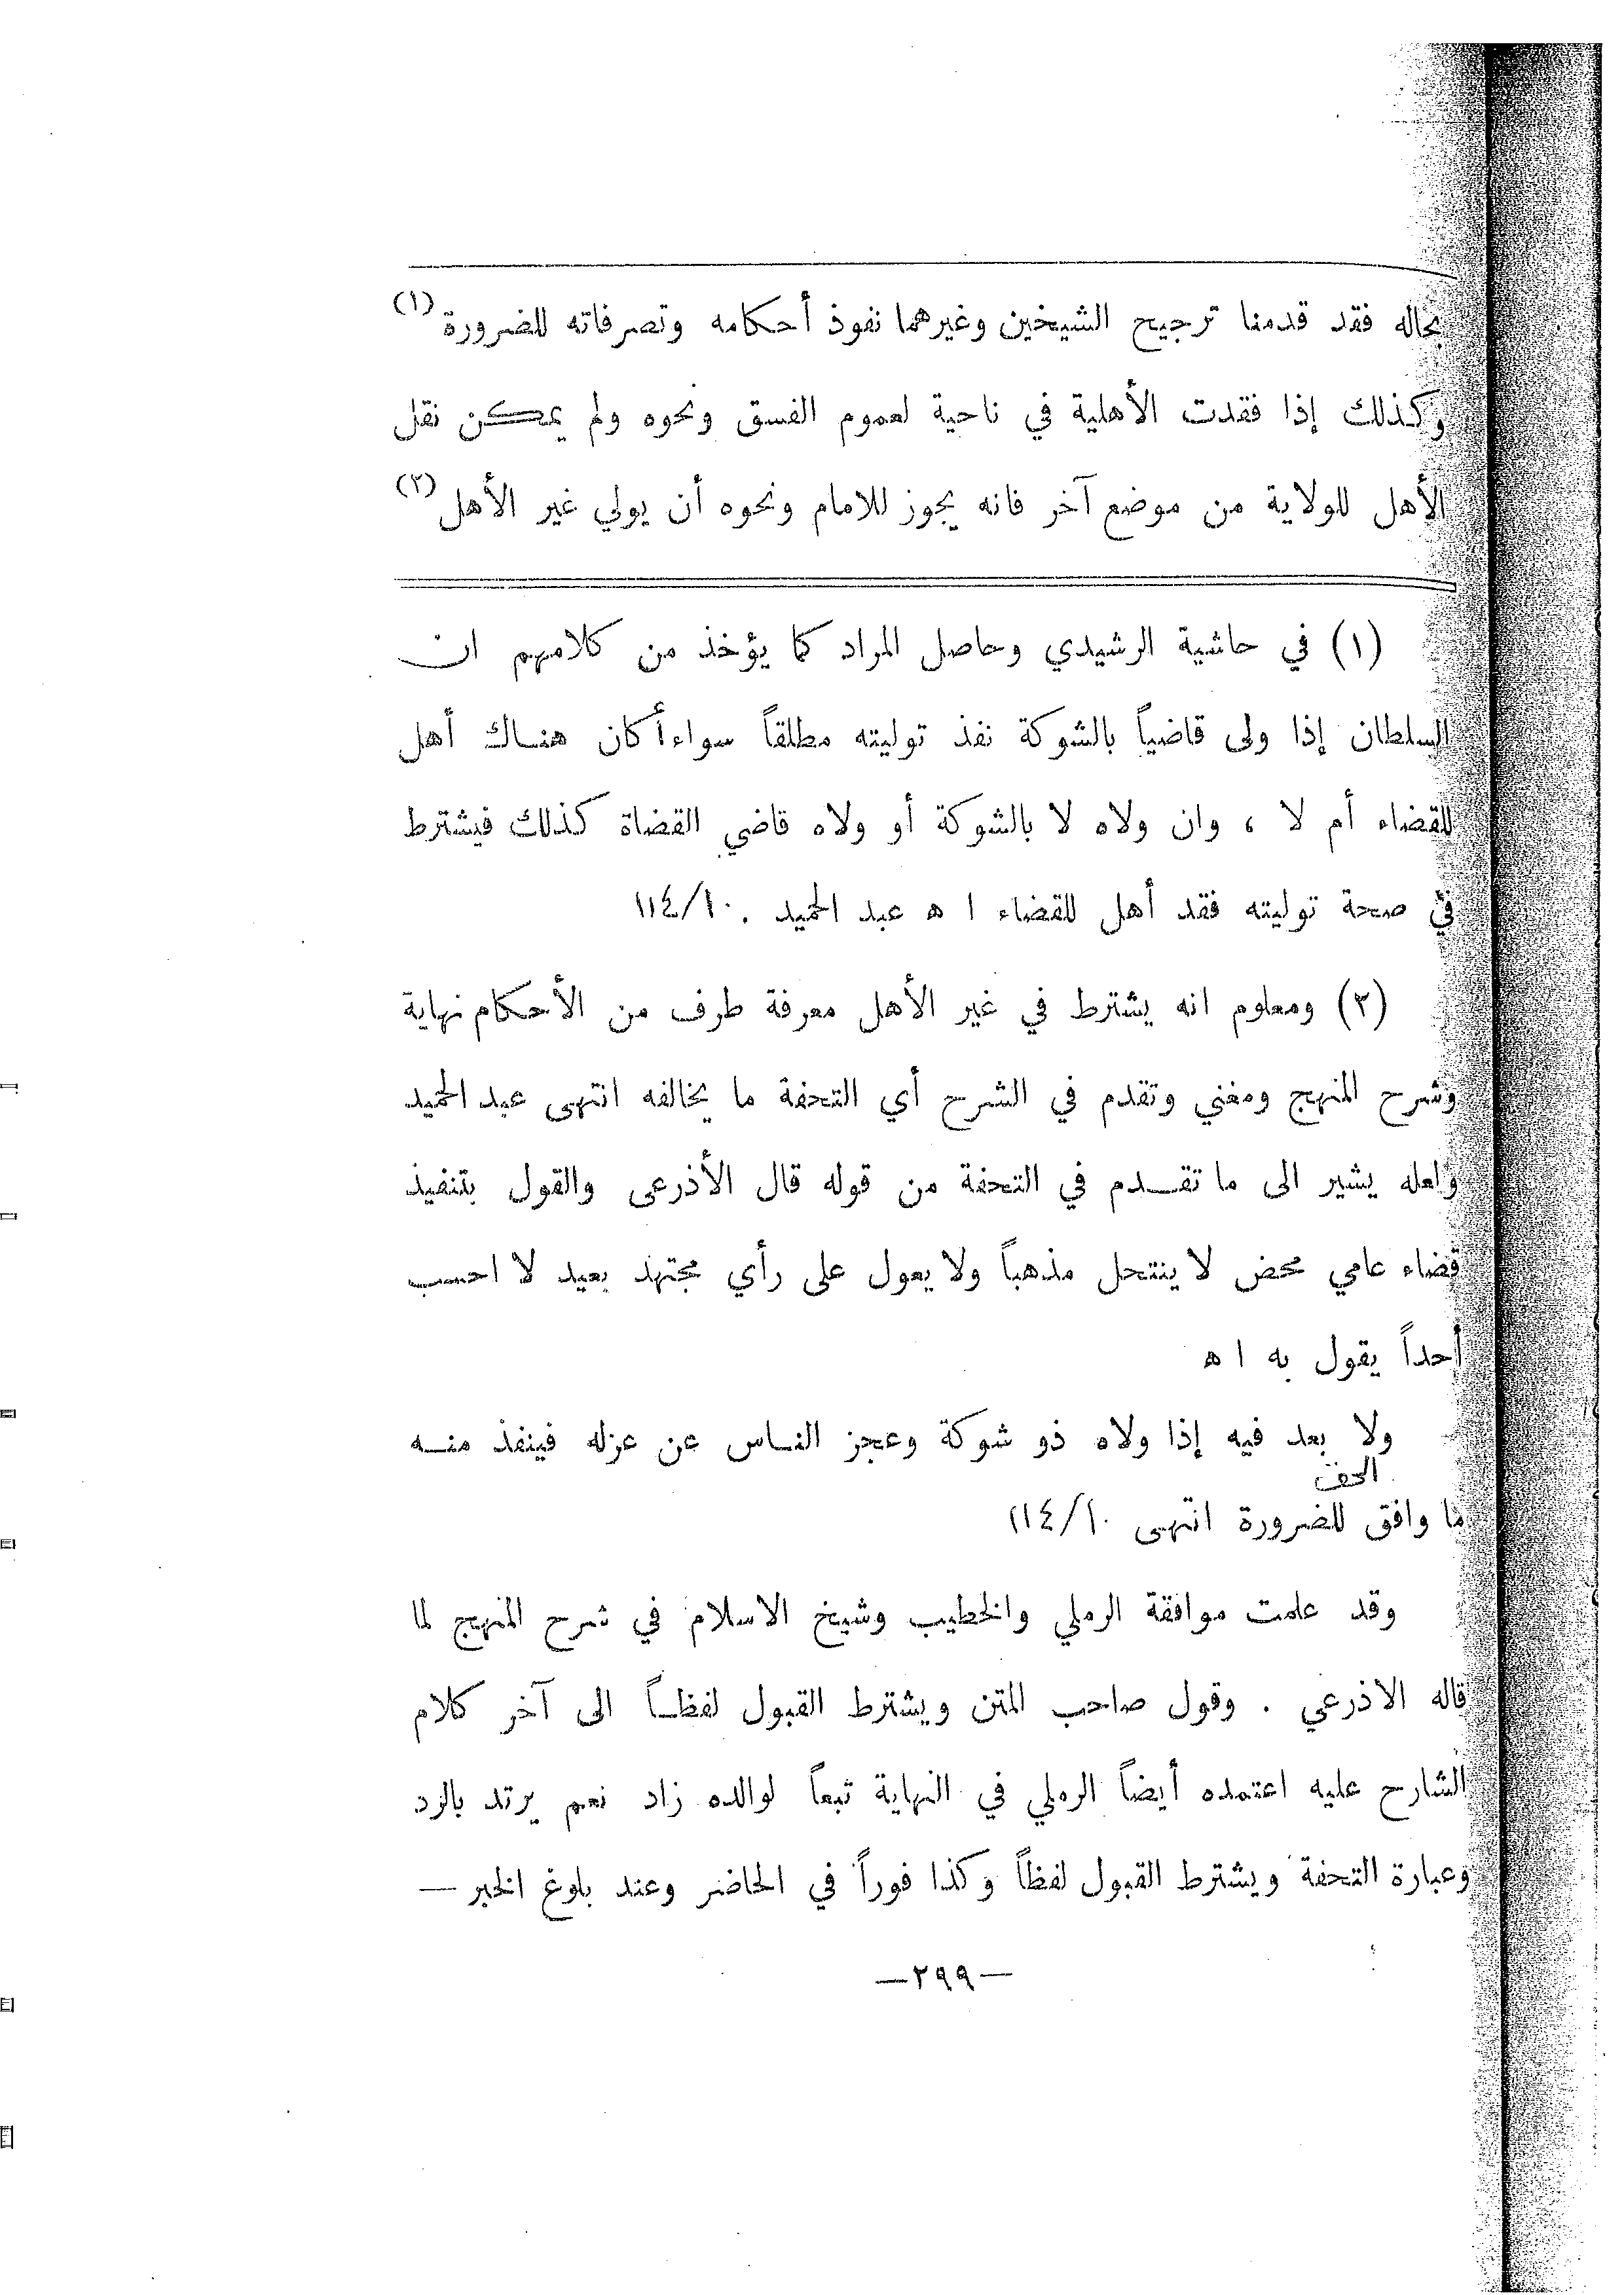 بحاله فقد قدمنا ترجيح الشيخين وغيرهما نفوذ أحكامه وتصرفاته للضرورة (١)
وكذلك إذا فقدت الأهلية في ناحية لعموم الفسق ونحوه ولم يمكن نقل
الأهل للولاية من موضع آخر فانه يجوز للامام ونحوه أن يولي غير الأهل (٢)
(١) في حاشية الرشيدي وحاصل المراد كما يؤخذ من كلامهم ان
السلطان إذا ولى قاضياً بالشوكة نفذ توليته مطلقاً سواء أكان هناك أهل
للقضاء أم لا ، وان ولاه لا بالشوكة أو ولاه قاضي القضاة كذلك فيشترط
في صحة توليته فقد أهل للقضاء ا ه عبد الحميد . ١١٤/١٠
(٢) ومعلوم انه يشترط في غير الأهل معرفة طرف من الأحكام نهاية
وشرح المنهج ومغني وتقدم في الشرح أي التحفة ما يخالفه انتهى عبد الحميد
ولعله يشير الى ما تقدم في التحفة من قوله قال الأذرعى والقول بتنفيذ
قضاء عامي محض لا ينتحل مذهباً ولا يعول على رأي مجتهد بعيد لا احسب
أحداً يقول به ا ه
ولا بعد فيه إذا ولاه ذو شوكة وعجز الناس عن عزله فينفذ منه
الحق
ما وافق للضرورة انتهى ١١٤/١٠
وقد علمت موافقة الرملي والخطيب وشيخ الاسلام في شرح المنهج لما
قاله الاذرعي . وقول صاحب المتن ويشترط القبول لفظاً الى آخر كلام
الشارح عليه اعتمده أيضاً الرملي في النهاية تبعاً لوالده زاد نعم يرتد بالرد
وعبارة التحفة ويشترط القبول لفظاً وكذا فوراً في الحاضر وعند بلوغ الخبر —
—٢٩٩—